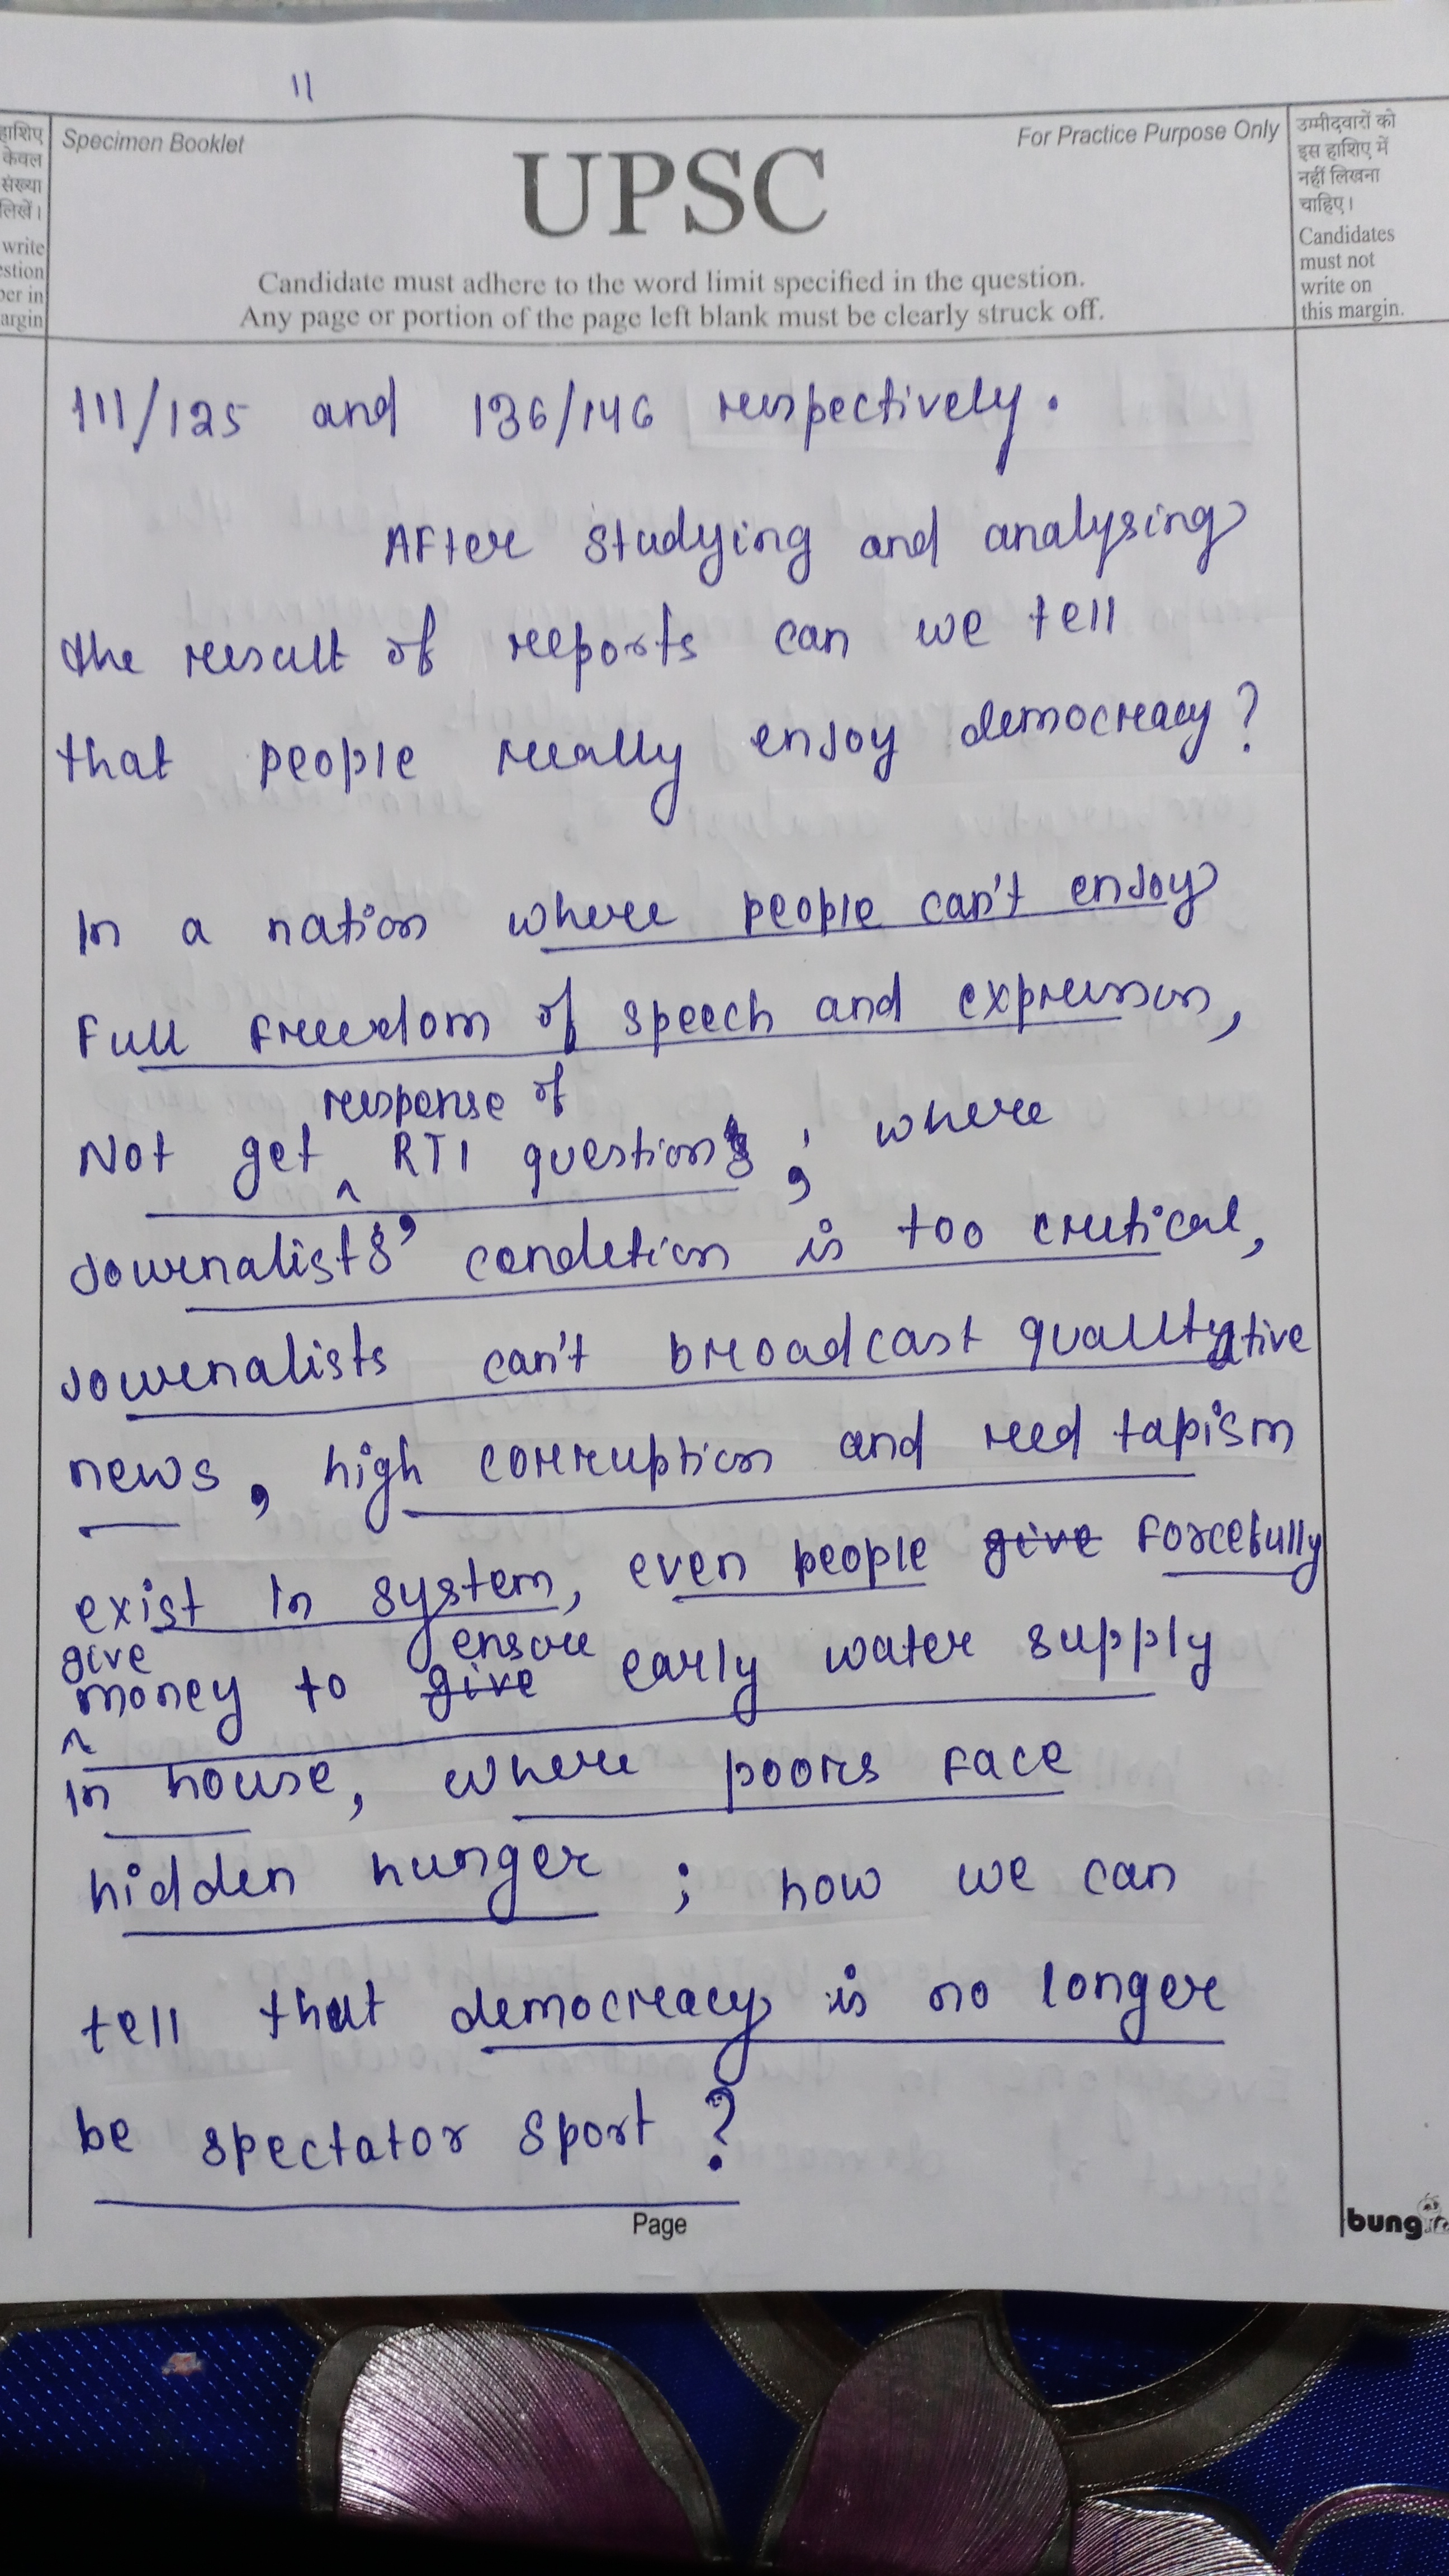 11
हाशिए
केवल
संख्या
लिखें।
write
estion
ber in
argin
Specimen Booklet
For Practice Purpose Only
UPSC
Candidate must adhere to the word limit specified in the question.
Any page or portion of the page left blank must be clearly struck off.
उम्मीदवारों को
इस हाशिए में
नहीं लिखना
चाहिए।
Candidates
must not
write on
this margin.
111/125 and 136/146 respectively.
After studying and analysing
the result of reports can we tell
that people really enjoy democracy?
In a nation where people can't enjoy
Full freedom of speech and expression,
response of
Not get ^ RTI questions, where
Journalists' condition is too critical,
Journalists can't broadcast qualitative
news, high corruption and red tapism
exist in system, even people give forcefully
give ensure
^ money to give early water supply
in house, where poors face
hidden hunger ; how we can
tell that democracy is no longer
be spectator sport ?
Page
bung